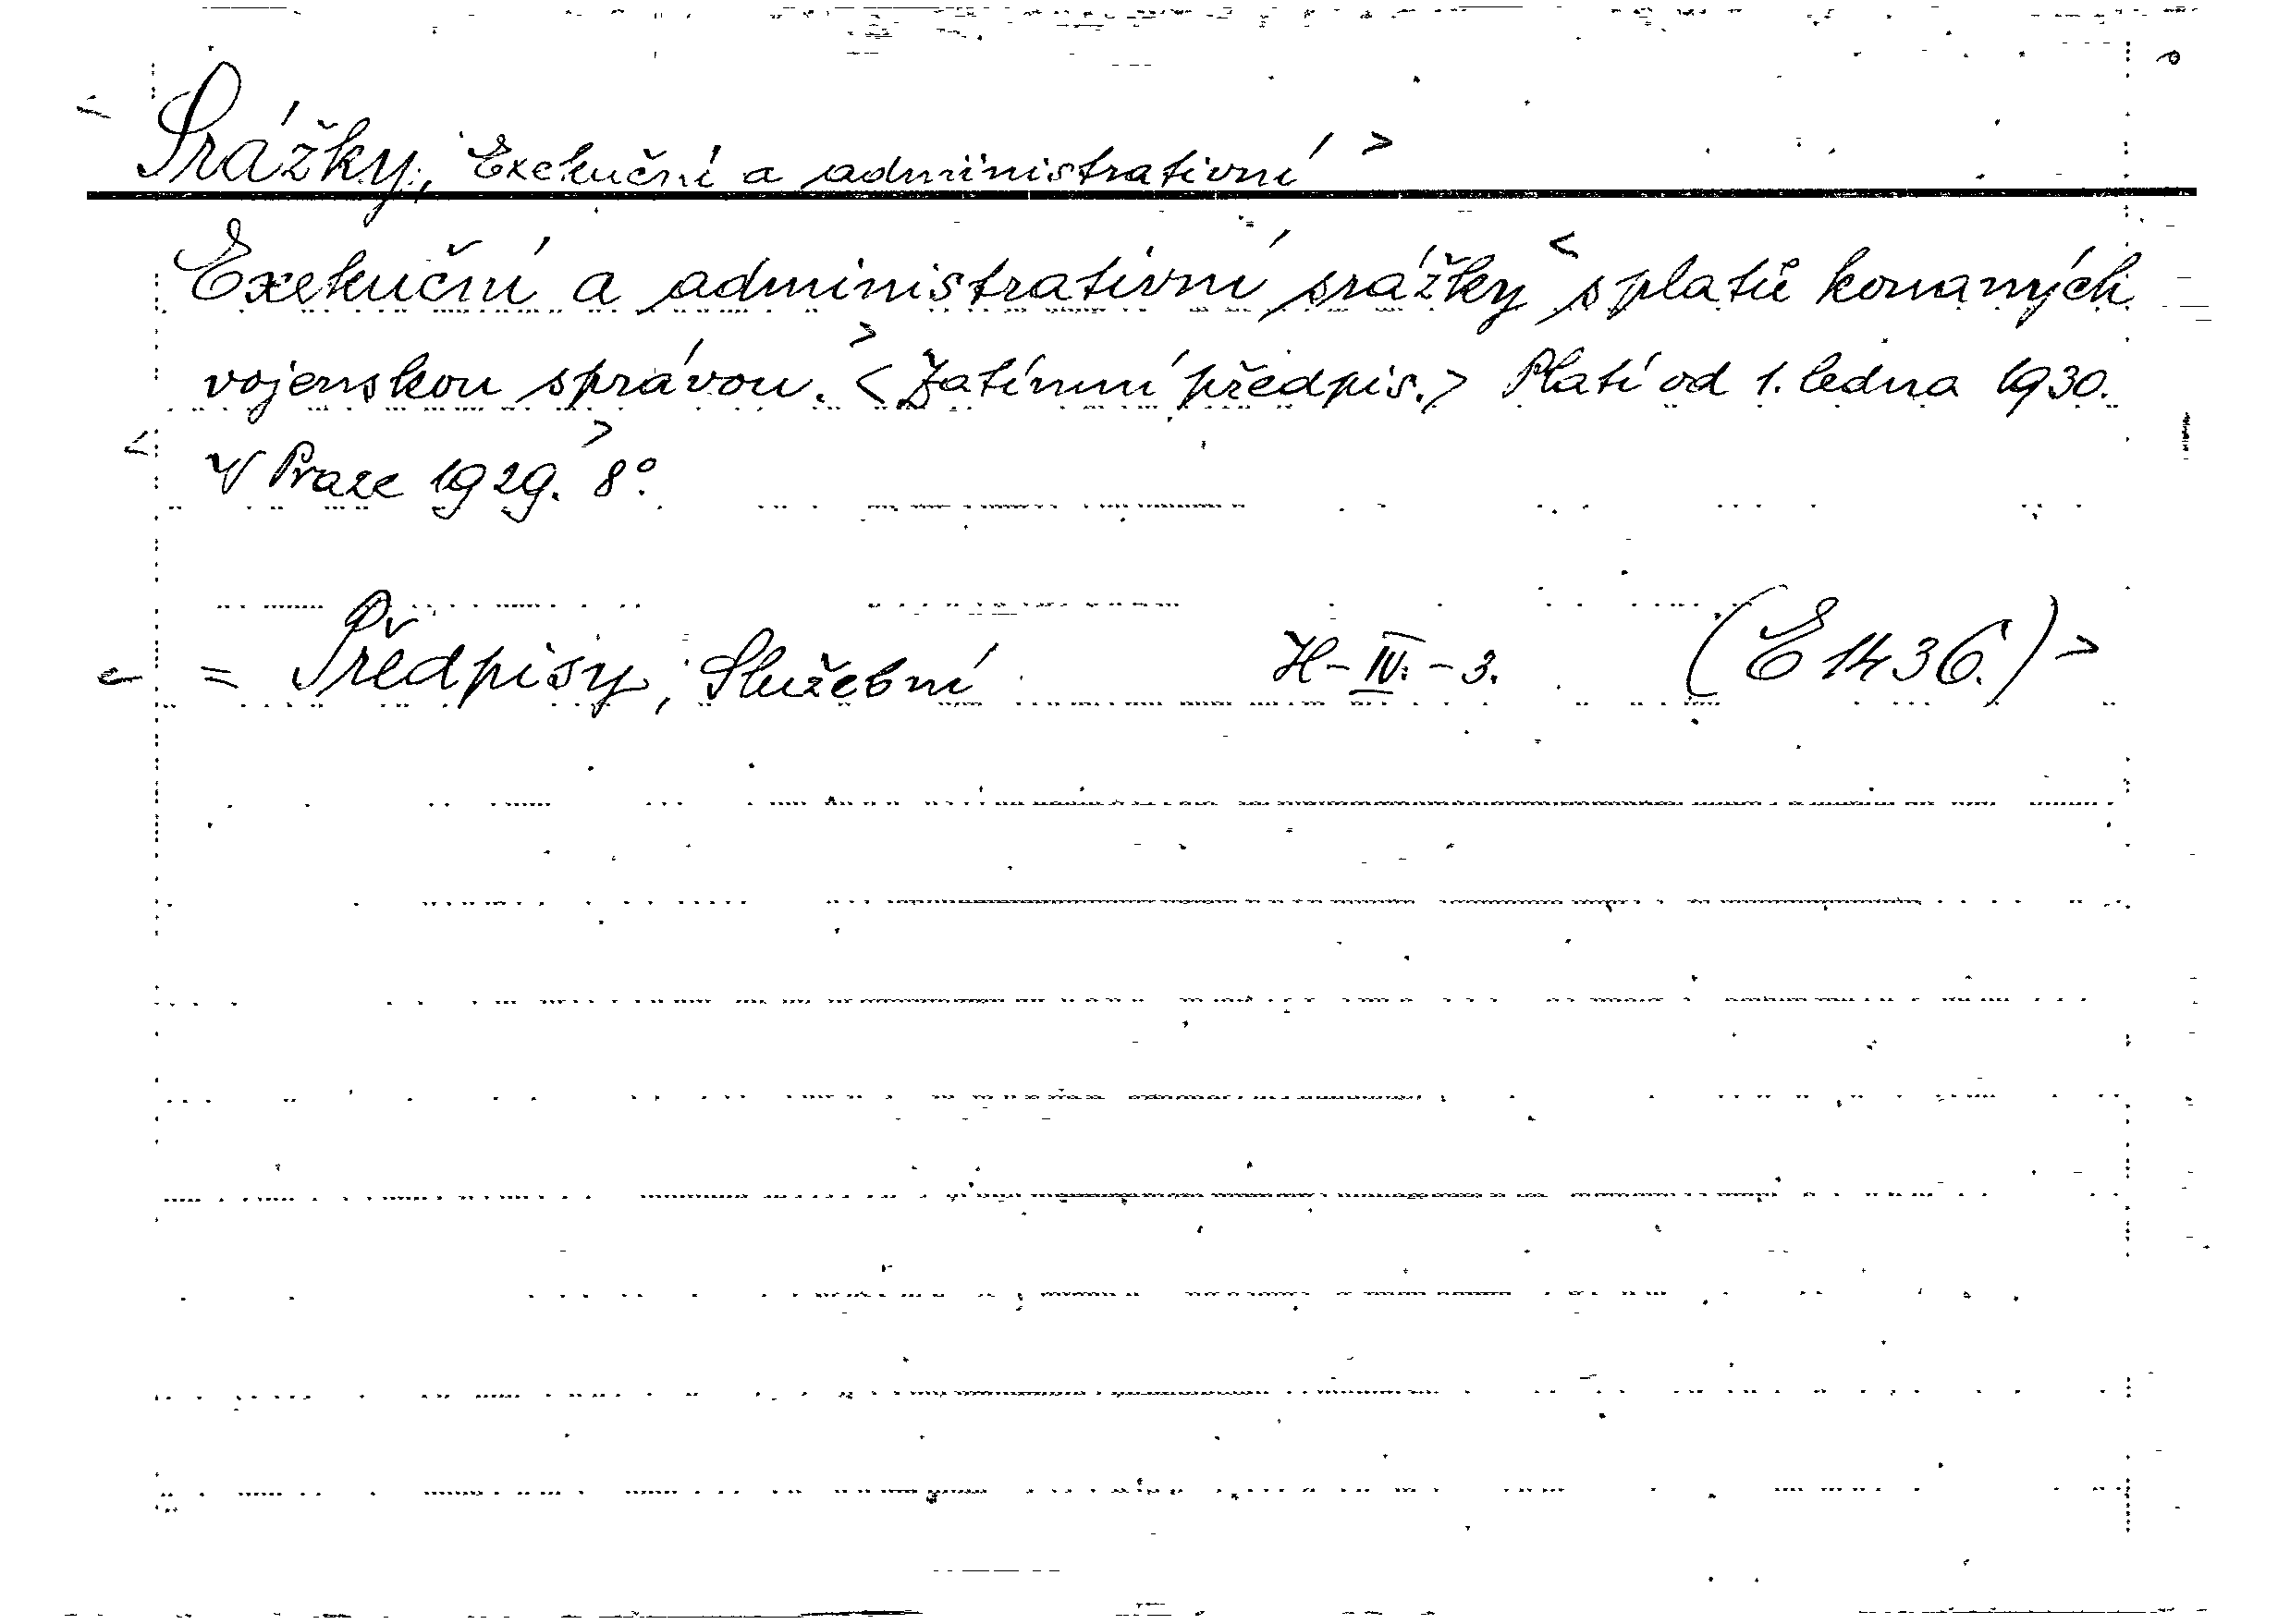 Srážky, Exekuční a administrativní >
Exekuční a administrativní srážky < s platů konaných
vojenskou správou. > < Zatímní předpis. > Platí od 1. ledna 1930.
< V Praze 1929. > 8°.
= Předpisy, Služební H-IV.-3. (E 1436.) >